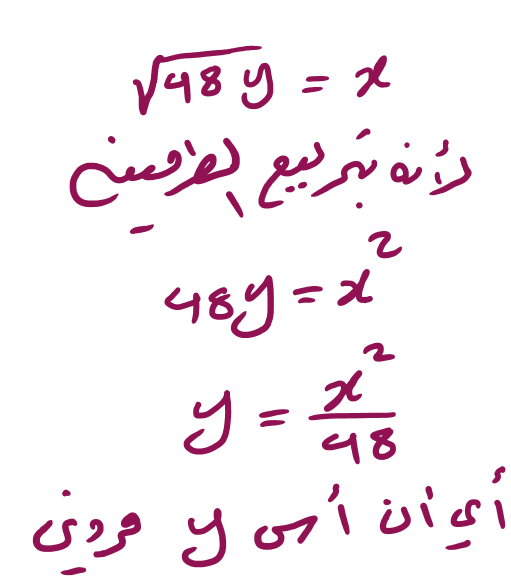 √48y = x
لأنه بتربيع الطرفين
48y = x²
y = x²/48
أي ان أس y فردي